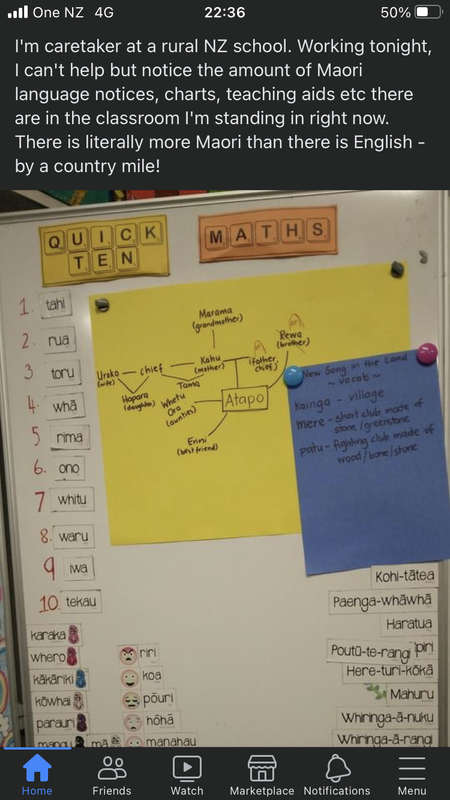 One NZ 4G 22:36 50%
I'm caretaker at a rural NZ school. Working tonight,
I can't help but notice the amount of Maori
language notices, charts, teaching aids etc there
are in the classroom I'm standing in right now.
There is literally more Maori than there is English -
by a country mile!
QUICK
TEN
MATHS
1. tahi
2. rua
3 toru
4. whā
5 rima
6. ono
7 whitu
8. waru
9 iwa
10. tekau
Marama
(grandmother)
Rewa
(brother)
Kahu
(mother)
(father,
chief)
Uroko
(wife)
chief
Tama
Hapara
(daughter)
Whetu
Ora
(aunties)
Atapo
Enni
(best friend)
New Song in the Land
~ vocab ~
Kainga - village
mere - short club made of
stone/greenstone
patu - fighting club made of
wood/bone/stone
karaka
whero
kākāriki
kōwhai
parauri
mangu
mā
riri
koa
pōuri
hōhā
manahau
Kohi-tātea
Paenga-whāwhā
Haratua
Poutū-te-rangi
Here-turi-kōkā
Mahuru
Whiringa-ā-nuku
Whiringa-ā-rangi
Home Friends Watch Marketplace Notifications Menu